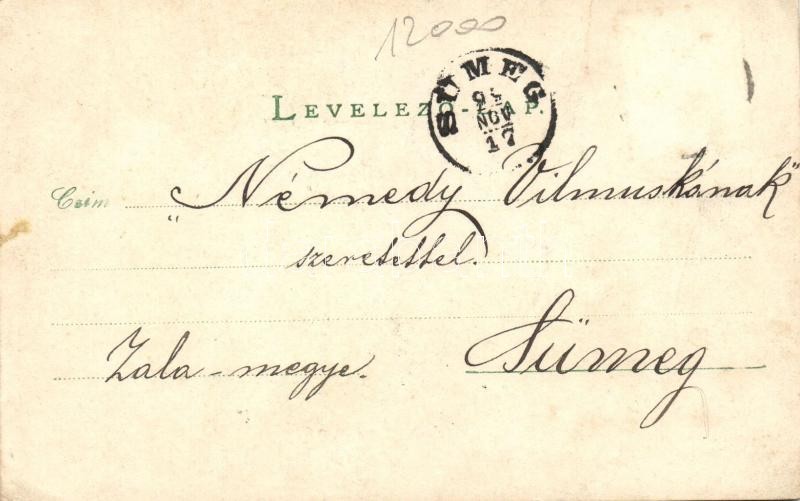 12000
SÜMEG
NOV
17
LEVELEZŐ-LAP.
Czim „Némedy Vilmuskának"
szeretettel.
Zala-megye.
Sümeg